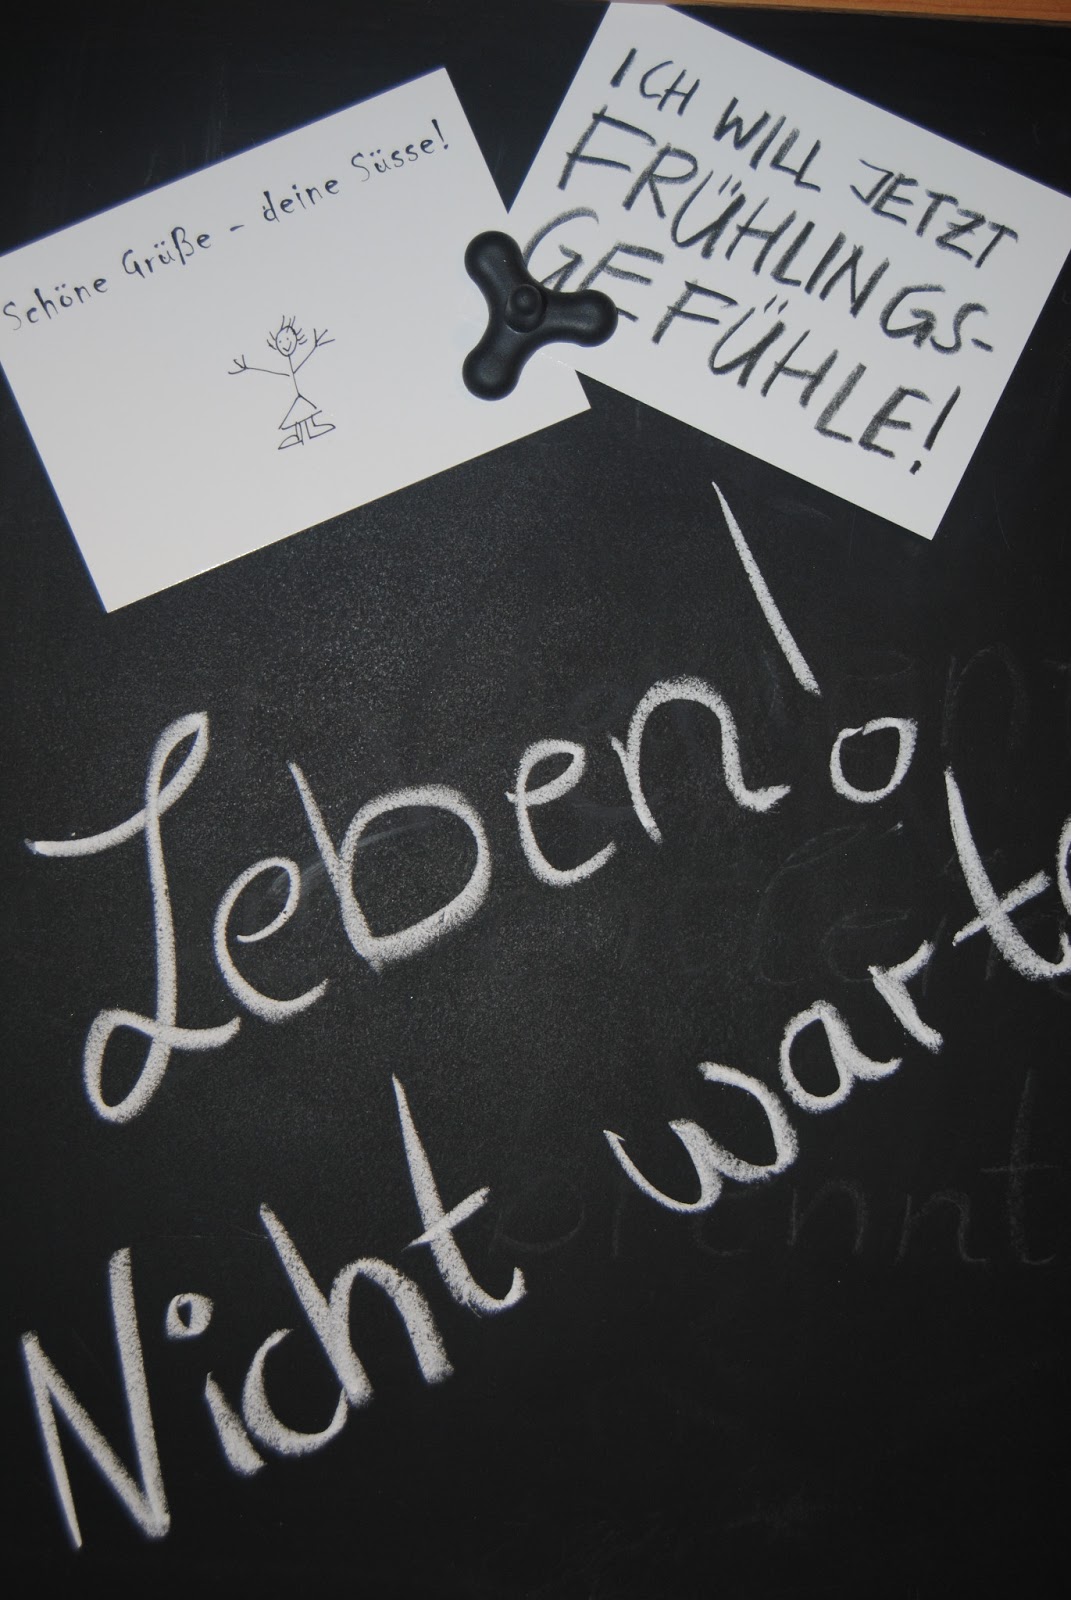 Schöne Grüße - deine Süsse!
ICH WILL JETZT
FRÜHLINGS-
GEFÜHLE!
Leben!
Nicht warte